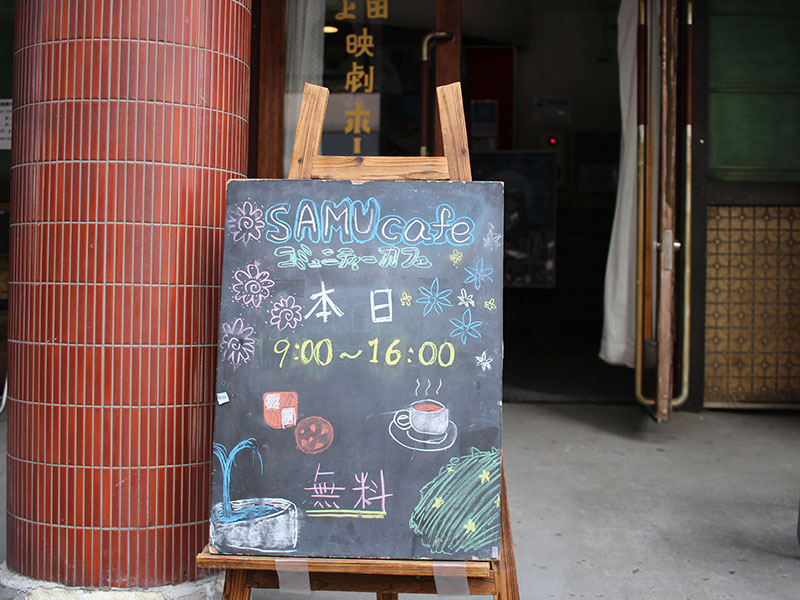 上田
映
劇
ホー
SAMU cafe
コミュニティーカフェ
本日
9:00～16:00
無料